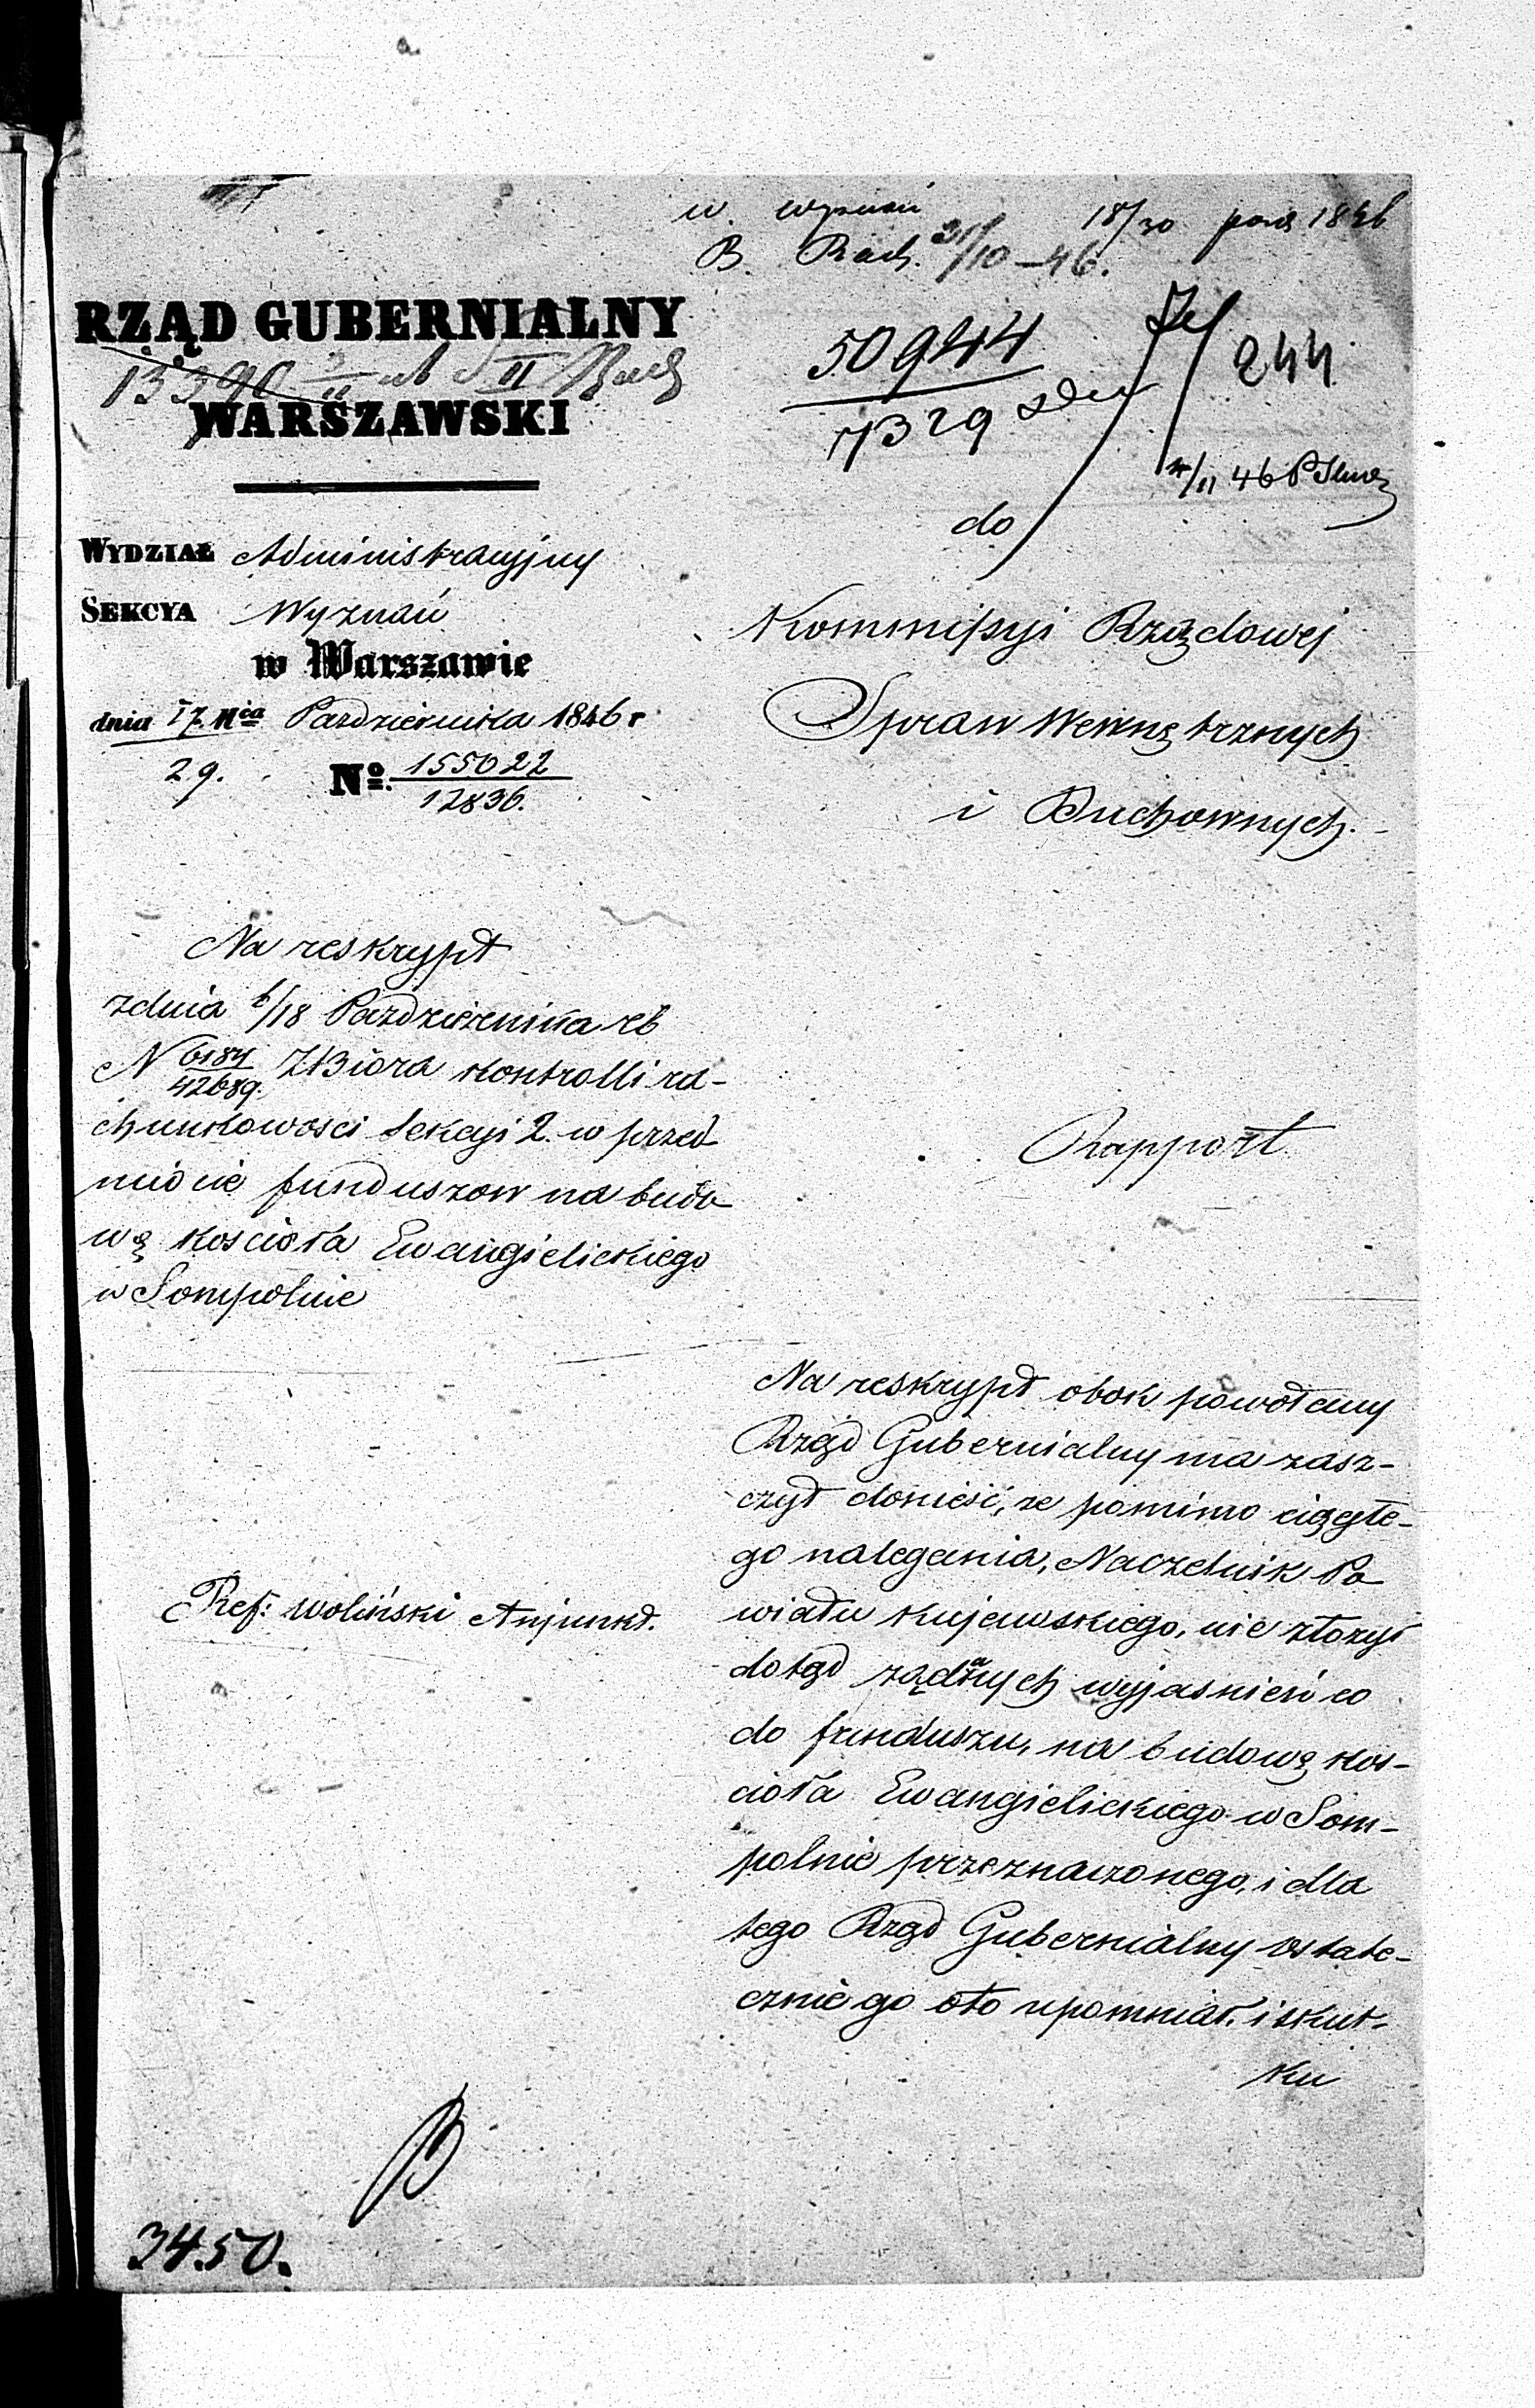 w. wyznań 18/30 paź 1846
B. Rach. 31/10 – 46.
RZĄD GUBERNIALNY
13390
WARSZAWSKI
50944
7329
244
4/11 46
do
WYDZIAŁ Administracyjny
SEKCYA Wyznań
w Warszawie
dnia 17. Mca Pazdziernika 1846 r
29.
No. 155022
12836.
Kommissyi Rządowej
Spraw Wewnętrznych
i Duchownych.
Na reskrypt
zdnia 6/18 Pazdziernika rb
N 6184
42689. Z Biora kontrolli ra-
chunkowosci Sekcyi 2. w przed
miocie funduszow na budo
wę koscioła Ewangielickiego
w Sompolnie
Rapport.
Na reskrypt obok powołany
Rząd Gubernialny ma zasz-
czyt donieść, ze pomimo ciągłe-
go nalegania, Naczelnik Po
wiatu Kujawskiego, nie złozył
dotąd rządanych wyjasnień co
do funduszu, na budowę kos-
cioła Ewangielickiego w Som-
polnie przeznaczonego, i dla
tego Rząd Gubernialny ostate-
cznie go oto upomniał, i skut-
ku
Ref: Woliński Anjunkt.
B
3450.